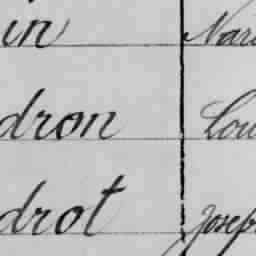 in Narc
dron Lou
drot Josep